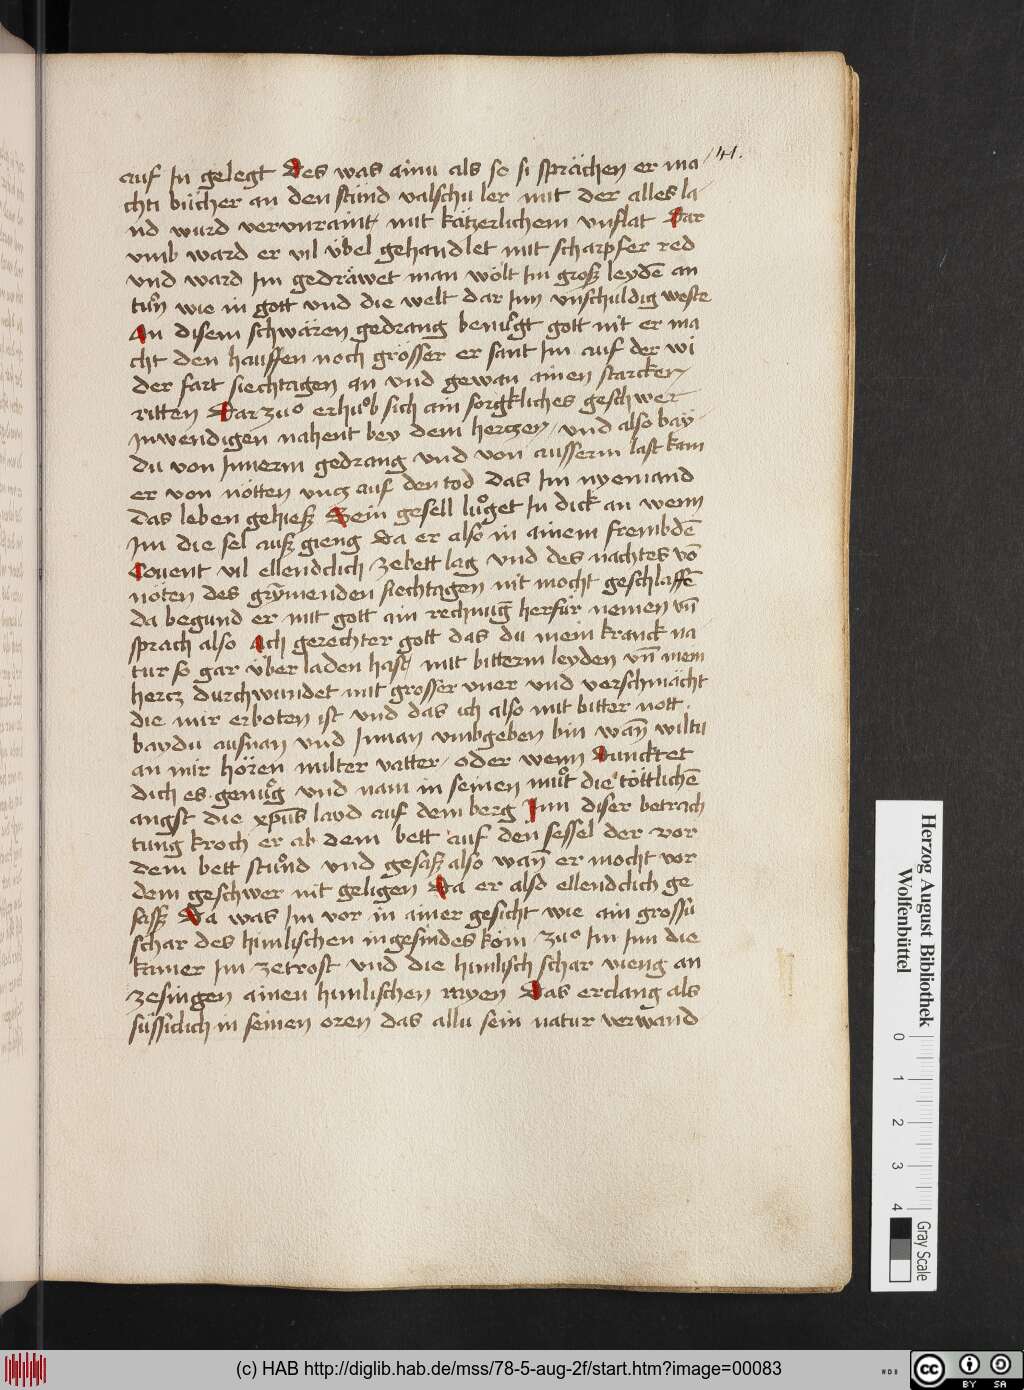 41.
auf In gelegt Des was ainu als so si sprächen er ma
chti bücher an den stünd valschu ler mit der alles la
nd wurd vervnraint mit kätzerlichem vnflat Dar
vmb ward er vil vbel gehandlet mit scharpfer red
vnd ward Im gedräwet man wölt Im groß leydē an
tůn wie in gott vnd die welt dar Inn vnschuldig weste
An disem schwären gedrang benůgt gott nit er ma
cht den hauffen noch grösser er sant Im auf der wi
der fart siechtagen an vnd gewan ainen starcken
ritten Dar zuo erhůb sich ain sorgkliches geschwer
Inwendigen nahent bey dem herczen vnd also bay
du von Innerm gedrang vnd von ausserm last kam
er von nötten vncz auf den tod das Im nyemand
das leben gehieß Sein gesell lůget In dick an wenn
Im die sel auß gieng Da er also in ainem frembdē
Couent vil ellendclich zebett lag vnd des nachtes vō
nöten des grȳmenden siechtagen nit mocht geschlaffē
da begund er mit gott ain rechnūg herfür nemen vn̄
sprach also Ach gerechter gott das du mein kranck na
tur so gar über laden hast mit bitterm leyden vn̄ mein
hercz durchwundet mit grosser vner vnd verschmächt
die mir erboten ist vnd das ich also mit bitter nott
baydu ausnan vnd Innan vmbgeben bin wan̄ wiltu
an mir hören milter vatter oder wenn Duncktet
dich es genůg vnd nam in seinen můt die töttlichē
angst die xp̄us layd auf dem berg Inn diser betrach
tung kroch er ab dem bett auf den sessel der vor
dem bett stůnd vnd gesaß also wan̄ er mocht vor
dem geschwer nit geligen Da er also ellendclich ge
saß Da was Im vor in ainer gesicht wie ain grossu
schar des himlischen ingesindes köm zuo Im Inn die
kamer Im zetrost vnd die himlisch schar vieng an
zesingen ainen himlischen rayen Das erclang als
süssiclich in seinen oren das allu sein natur verwand
Herzog August Bibliothek
Wolfenbüttel
0 1 2 3 4
Gray Scale
(c) HAB http://diglib.hab.de/mss/78-5-aug-2f/start.htm?image=00083
cc BY SA